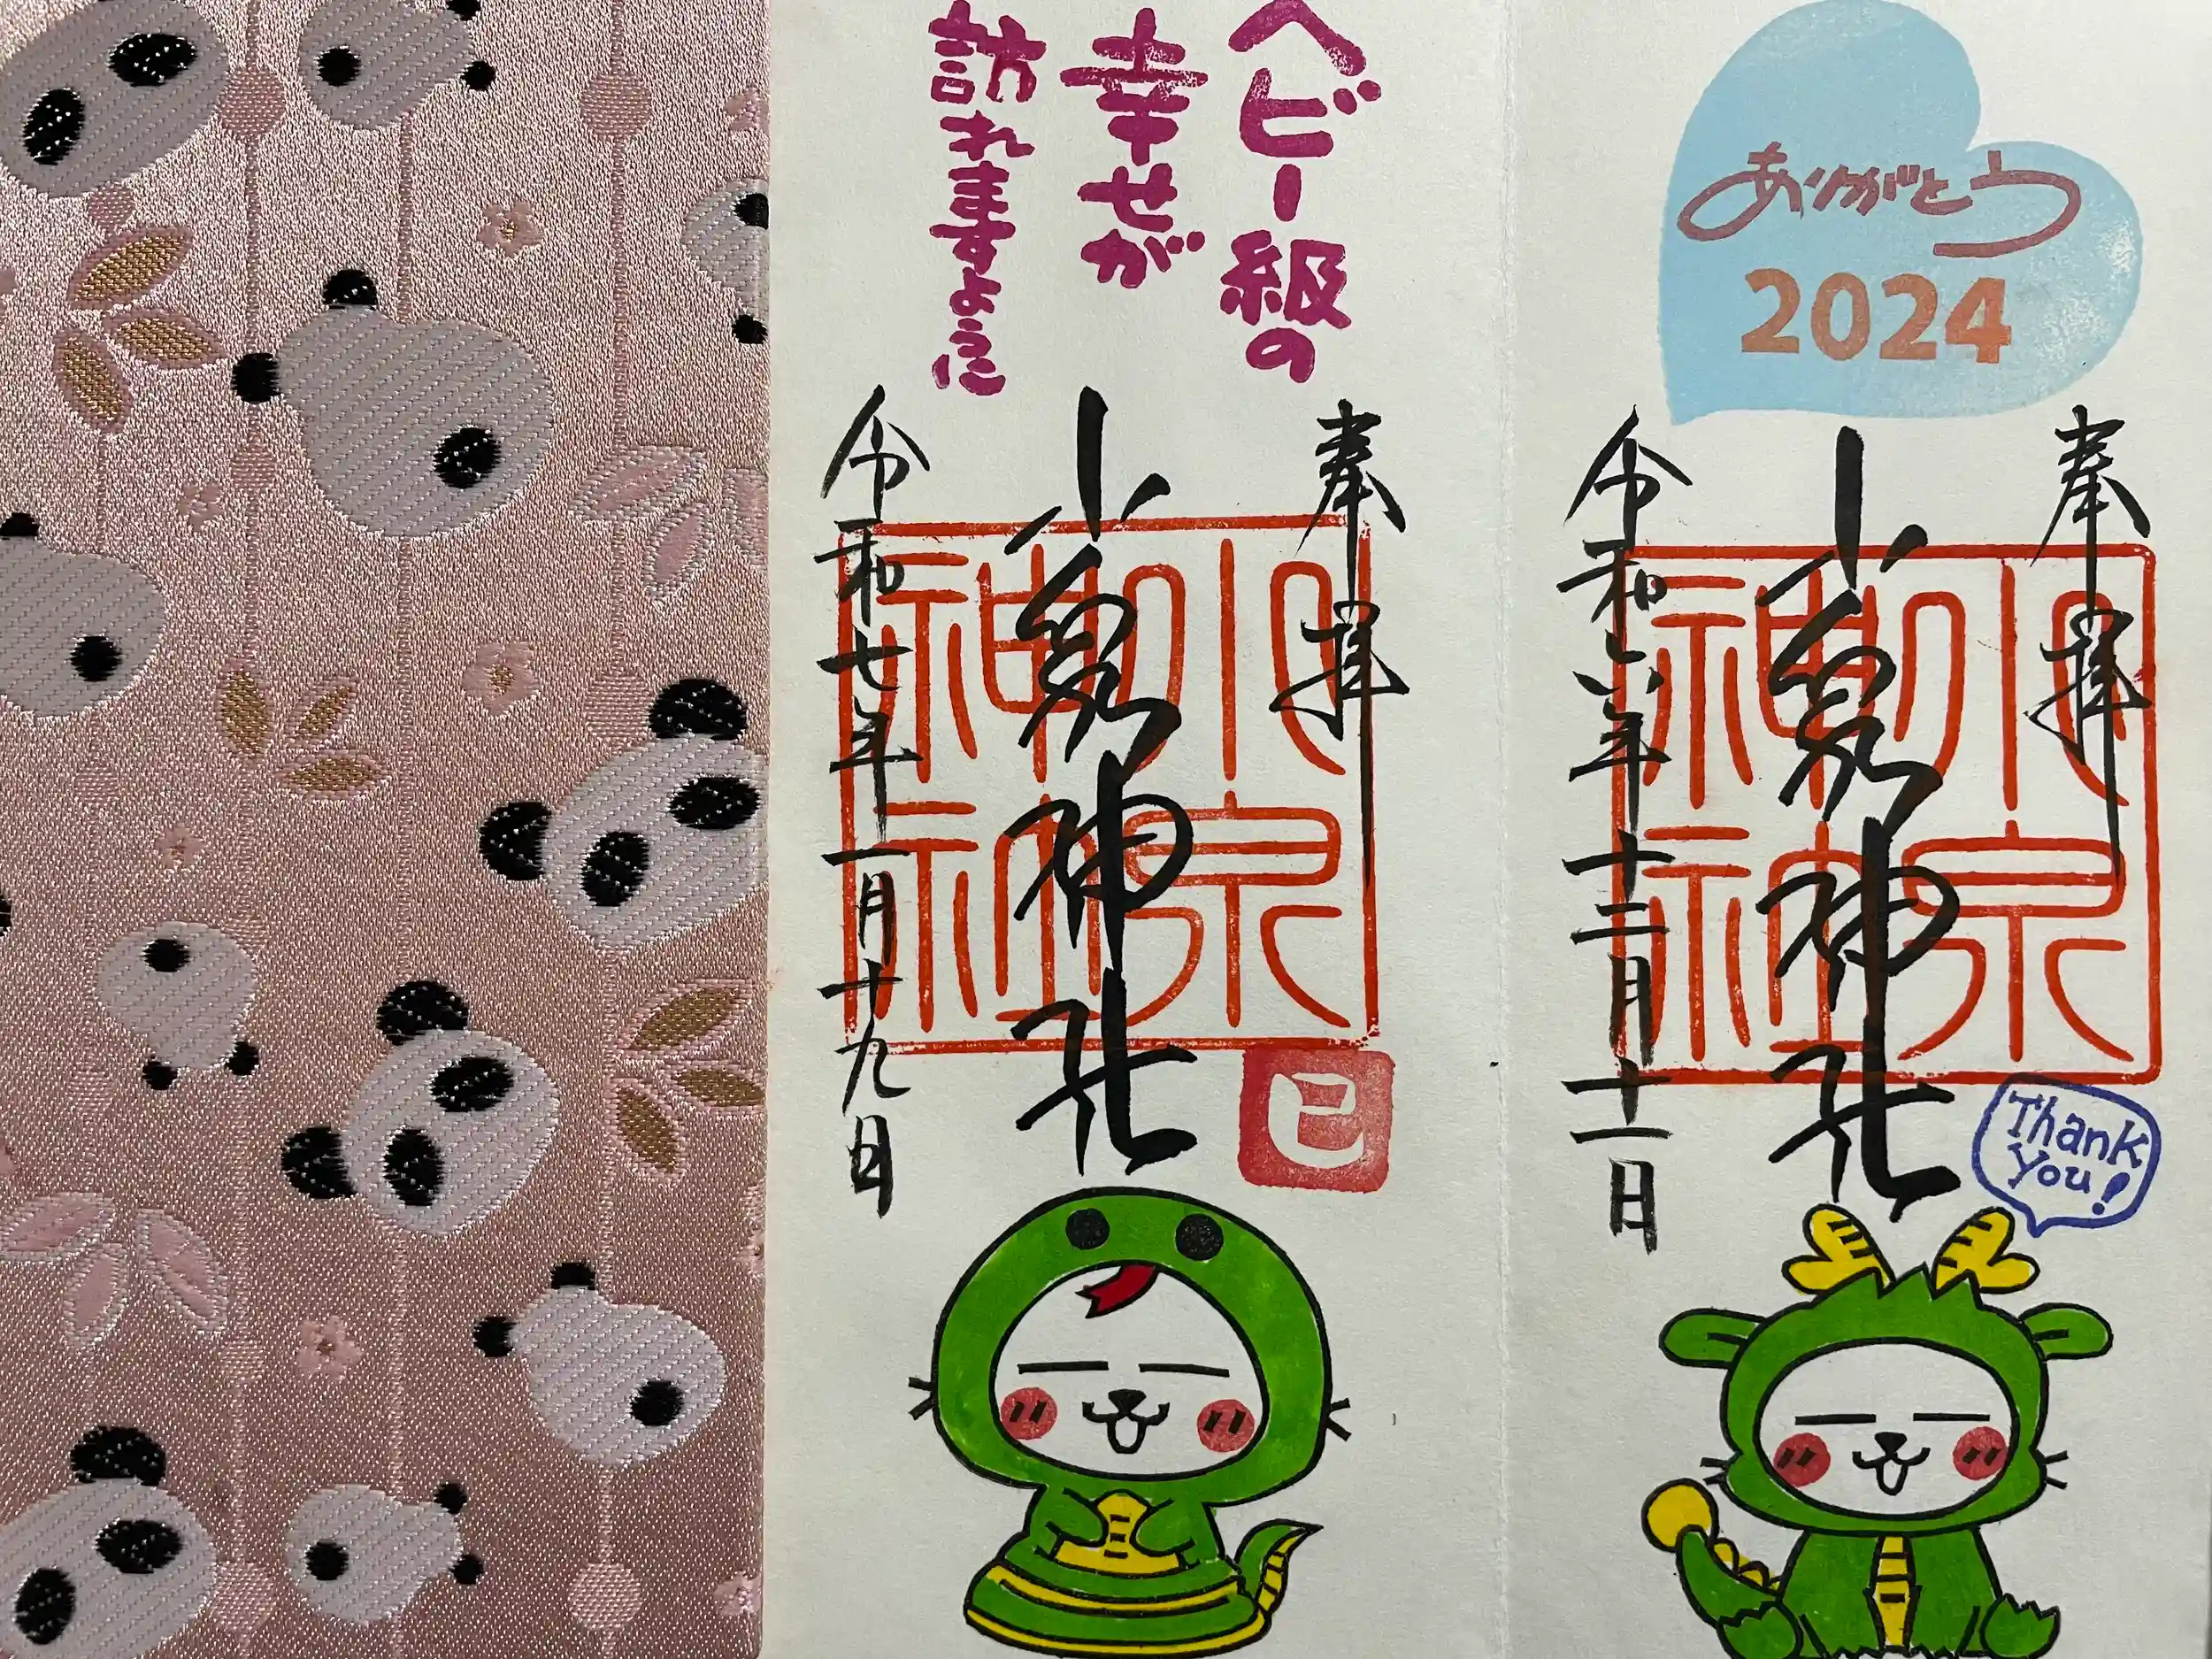 ありがとう
2024
奉拝
小泉神社
小泉
神社
令和六年十二月十一日
Thank
You!
ヘビー級の
幸せが
訪れますように
奉拝
小泉神社
小泉
神社
令和七年一月十九日
巳